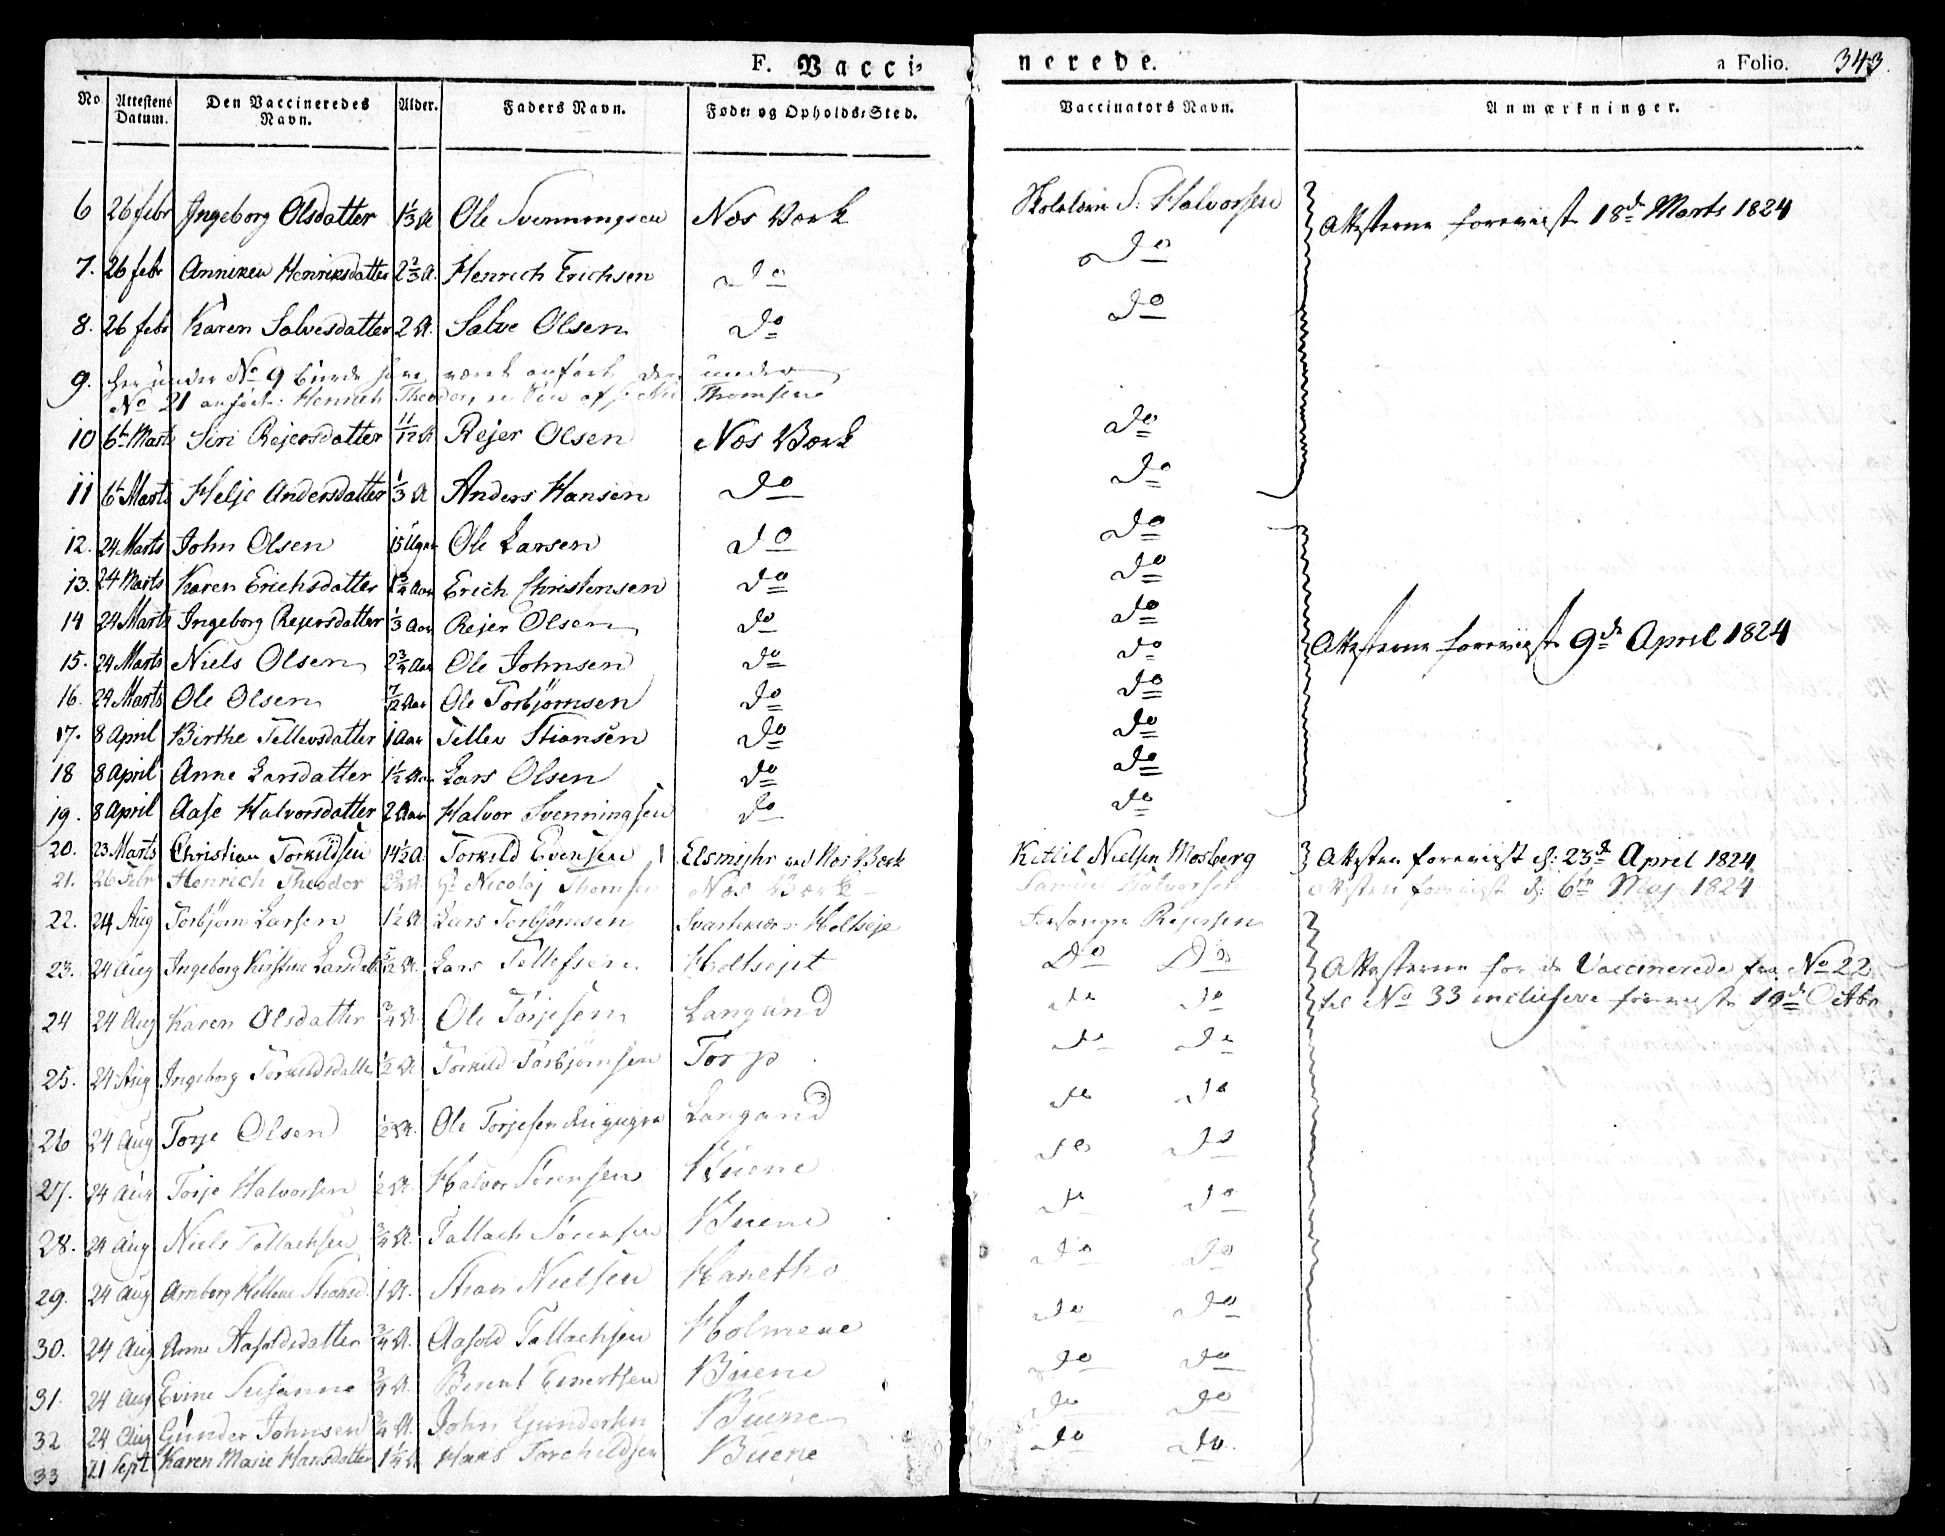 F. Vacci=
nerede.
a Folio. 343.
No. Attestens Datum. Den Vaccineredes Navn. Alder. Faders Navn. Føde- og Opholds-Sted. Vaccinators Navn. Anmærkninger.
6 26 febr Ingeborg Olsdatter 1⅓ A Ole Svenningsen Næs Værk S. Halvorsen Attesterne foreviist 18de Marts 1824
7. 26 febr Anniken Henriksdatter 2⅔ A. Henrich Erichsen do do
8. 26 febr Karen Salvesdatter 2 A. Salve Olsen do do
9. her under No 9 burde have været anført den under
No 21 anførte Henrich Theodor, en Søn af Thomsen
10 6t Marts Siri Rejersdatter 11/12 A Rejer Olsen Næs Værk do
11 6t Marts Helje Andersdatter ⅓ A Anders Hansen do do
12. 24 Marts John Olsen 15 Uger Ole Larsen do do
13. 24 Marts Karen Erichsdatter 1¾ Aar Erich Christensen do do
14 24 Marts Ingeborg Rejersdatter ⅓ Aar Rejer Olsen do do
15. 24 Marts Niels Olsen 2¾ Aar Ole Johnsen do do Attesterne foreviist 9de April 1824
16. 24 Marts Ole Olsen 7/12 Aar Ole Torbjørnsen do do
17. 8 April Birthe Tellevsdatter 1 Aar Tellev Stiansen do do
18 8 April Anne Larsdatter 1½ Aar Lars Olsen do do
19. 8 April Aase Halvorsdatter 2 Aar Halvor Svenningsen do do
20. 23 Marts Christian Torkildsen 14½ A. Torkild Evensen ved Næs Værk Kittil Nielsen Mosberg Attesten foreviist d: 23de April 1824
21. 26 Febr Henrich Theodor Nicolaj Thomsen Næs Værk Halvorsen Attesten foreviist d: 6te Maj 1824
22. 24 Aug Torbjørn Larsen 1½ A Lars Torbjørnsen Holtseje Rejersen
23. 24 Aug Ingeborg Kirstine Larsdatter 5/12 A. Lars Tellefsen Holtsejet Do Do Attesterne for de Vaccinerede fra No 22
24 24 Aug Karen Olsdatter ¾ A. Ole Torjesen Langand do do til No 33 inclusive foreviist 19de Octbr
25. 24 Aug Ingeborg Torkildsdatter ½ A Torkild Torbjørnsen Torje do do
26 24 Aug Torje Olsen ½ A. Ole Torjesen Langand do do
27. 24 Aug Torje Halvorsen ½ A. Halvor Sørensen Buene do do
28. 24 Aug Niels Tallachsen ¾ A. Tallach Sørensen Buene do do
29. 24 Aug Hellene 1 A. Stian Nielsen Hanetho do do
30. 24 Aug Anne Aasoldsdatter ¾ A. Aasold Tallachsen Holmene do do
31. 24 Aug Susanne ¾ A. Berent Evertsen Buene do do
32 24 Aug Gunder Johnsen ¾ A. John Gundersen Buene do do
33 21 Sept Karen Marie Hansdatter Hans Torchildsen Buene do do.